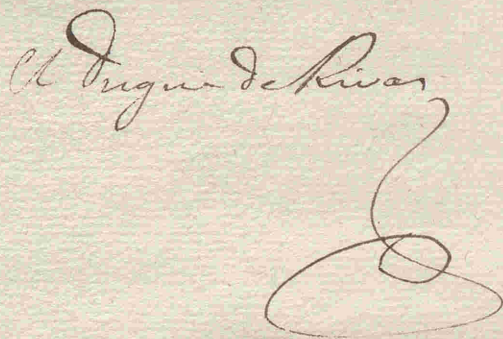 El Duque de Rivas